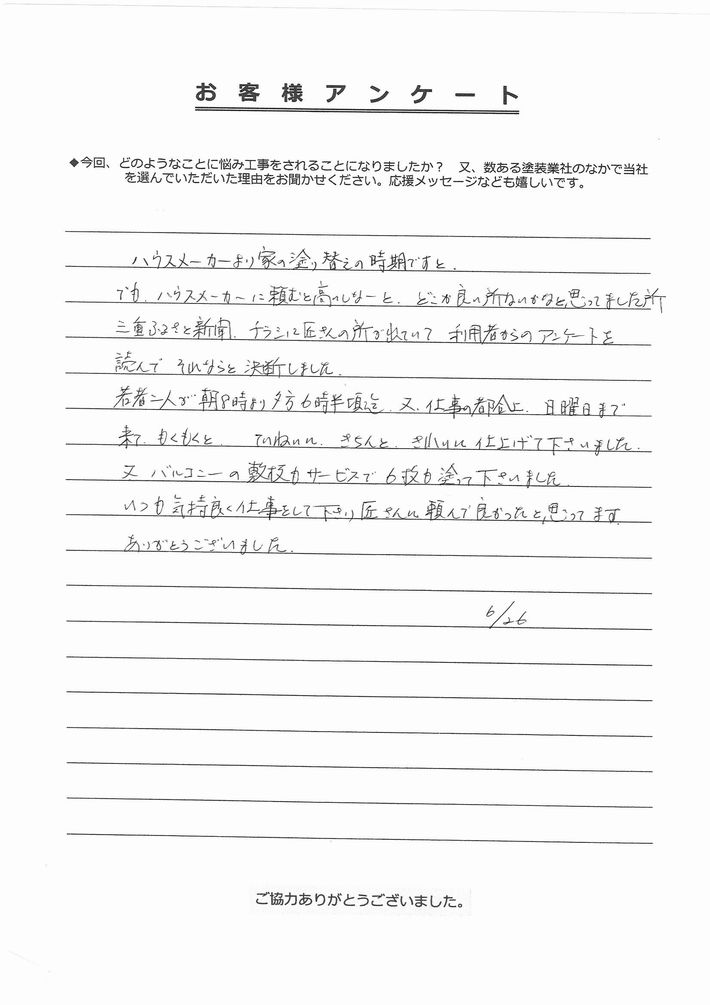 お客様アンケート
◆今回、どのようなことに悩み工事をされることになりましたか？　又、数ある塗装業社のなかで当社
を選んでいただいた理由をお聞かせください。応援メッセージなども嬉しいです。
ハウスメーカーより家の塗り替えの時期ですと、
でも、ハウスメーカーに頼むと高いしなーと、どこか良い所ないかなと思ってました所
三重ふるさと新聞、チラシに匠さんの所が出ていて 利用者からのアンケートを
読んで それならと決断しました。
若者二人が朝8時より夕方6時半頃迄、又、仕事の都合上、日曜日まで
来て、もくもくと、ていねいに、きちんと、きれいに仕上げて下さいました。
又 バルコニーの敷板もサービスで6枚も塗って下さいました
いつも気持良く仕事をして下さり匠さんに頼んで良かったと思ってます。
ありがとうございました。
6/26
ご協力ありがとうございました。